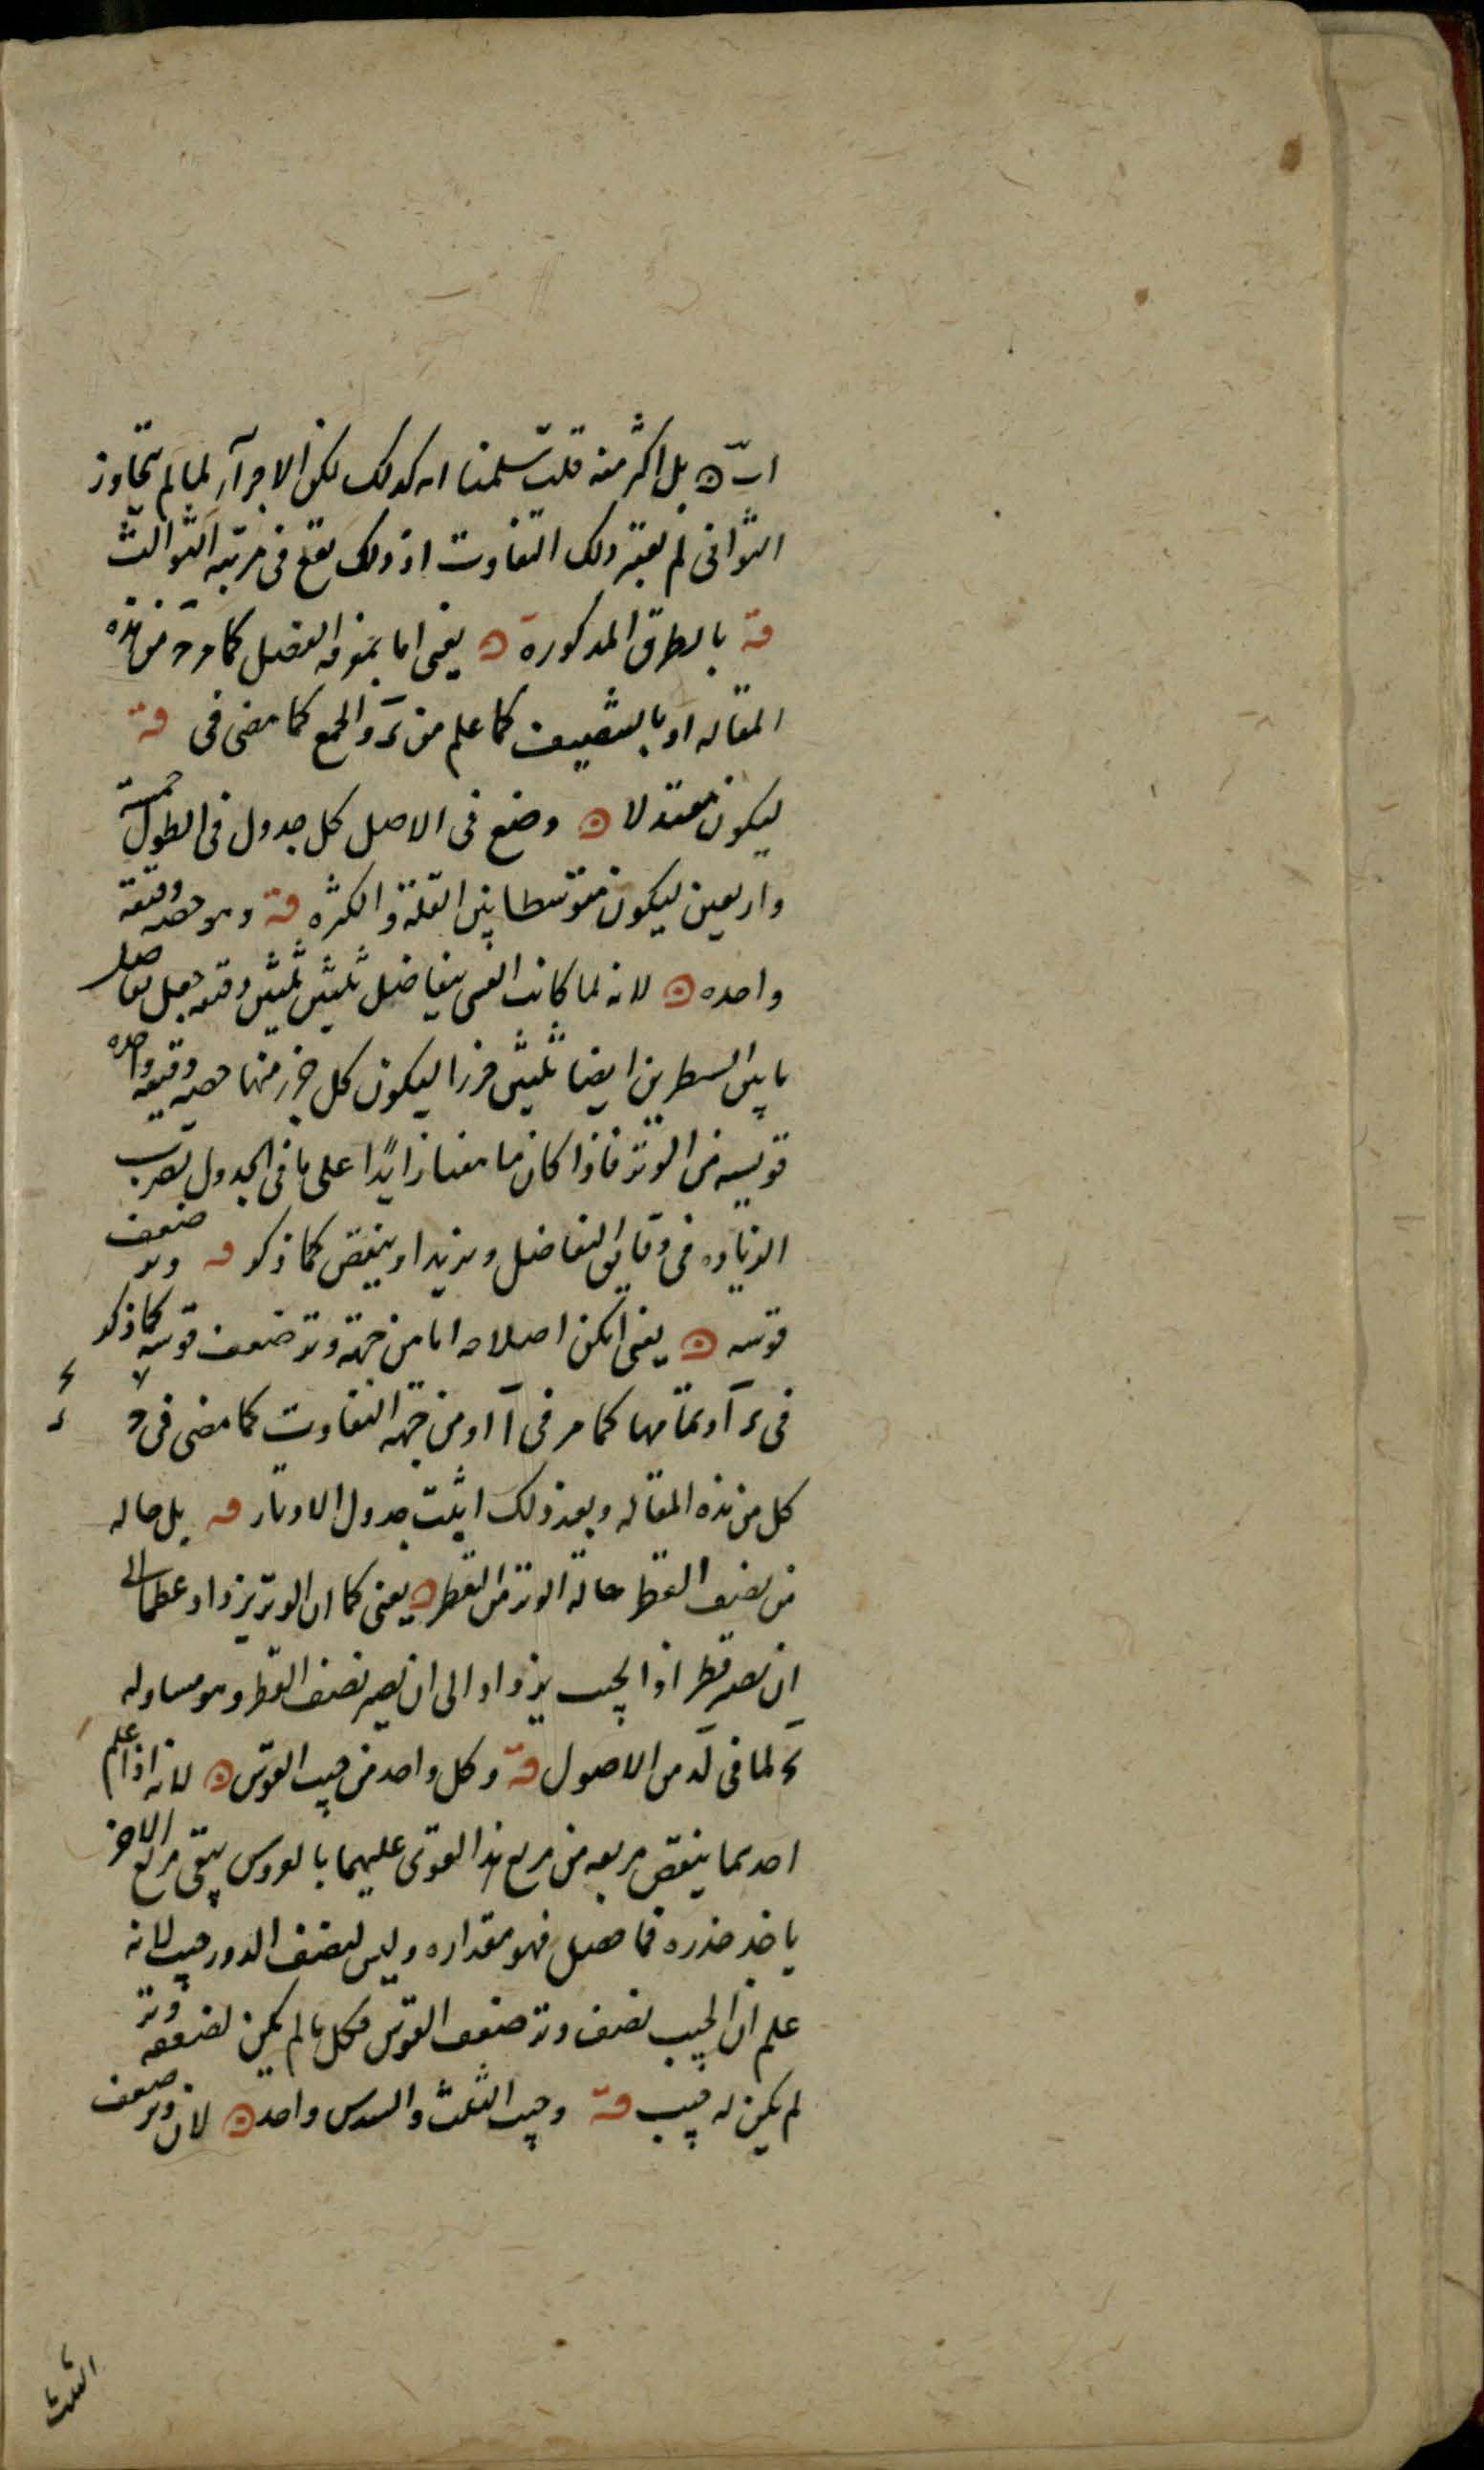 اب ۵ بل اكثر منه قلت سلمنا انه كذلك لكن الاجزاء لما لم يتجاوز
الثوانى لم يعتبر ذلك التفاوت اذ ذلك يقع فى مرتبة الثوالث
قه بالطرق المذكورة ۵ يعنى اما بمعرفة الفضل كما مر من هذه
المقاله او بالتنصيف كما علم من والجمع كما مضى فى قه
ليكون معتدلا ۵ وضع فى الاصل كل جدول فى الطول خمسة
واربعين ليكون متوسطا بين القلة والكثره قه وهو حصه دقيقة
واحده ۵ لانه لما كانت القسى يتفاضل ثلثين ثلثين دقيقه جعل تفاضل
ما بين السطرين ايضا ثلثين جزرا ليكون كل جزر منها حصه دقيقه واحده
قويسه من الوتر فاذا كان ما معنا زايدًا على ما فى الجدول يضرب
الزياده فى دقايق التفاضل ويزيد او ينقص كما ذكر قه وتر ضعف
قوسه ۵ يعنى امكن اصلاحه اما من جهة وتر ضعف قوسه كما ذكر
فى او تمامها كما مر فى آ او من جهة التفاوت كما مضى فى
كل من هذه المقاله وبعد ذلك اثبت جدول الاوتار قه بل حاله
من نصف القطر حالة الوتر من القطر ۵ يعنى كما ان الوتر يزداد عظما الى
ان يصير قطرا اذا الجيب يزداد الى ان يصير نصف القطر وهو مساو له
لما فى له من الاصول قه وكل واحد من جيب القوس ۵ لانه اذا علم
احدهما ينقص مربعه من مربع هذا القوى عليهما بالعروس يبقى مربع الاخر
ياخذ جذره فما حصل فهو مقداره وليس لنصف الدور جيب لانه
علم ان الجيب نصف وتر ضعف القوس فكل ما لم يكن لضعفه وتر
لم يكن له جيب قه وجيب الثلث والسدس واحد ۵ لان وتر ضعف
الثلث